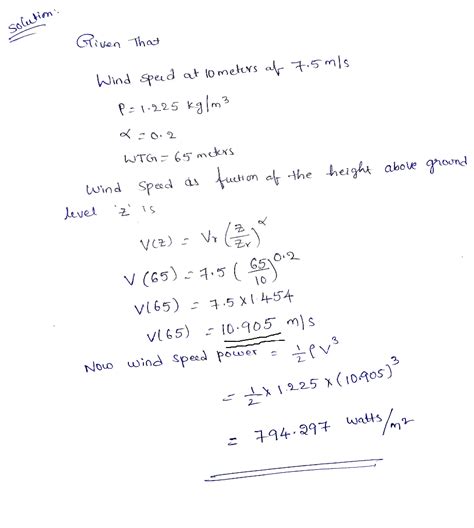 Solution:
Given That
Wind speed at 10 meters of 7.5 m/s
ρ = 1.225 kg/m³
α = 0.2
WTG = 65 meters
Wind speed as fuction of the height above ground
level 'z' is
V(z) = Vr (z/zr)^α
V(65) = 7.5 (65/10)^0.2
V(65) = 7.5 × 1.454
V(65) = 10.905 m/s
Now wind speed power = 1/2 ρV³
= 1/2 × 1.225 × (10.905)³
= 794.297 watts/m²